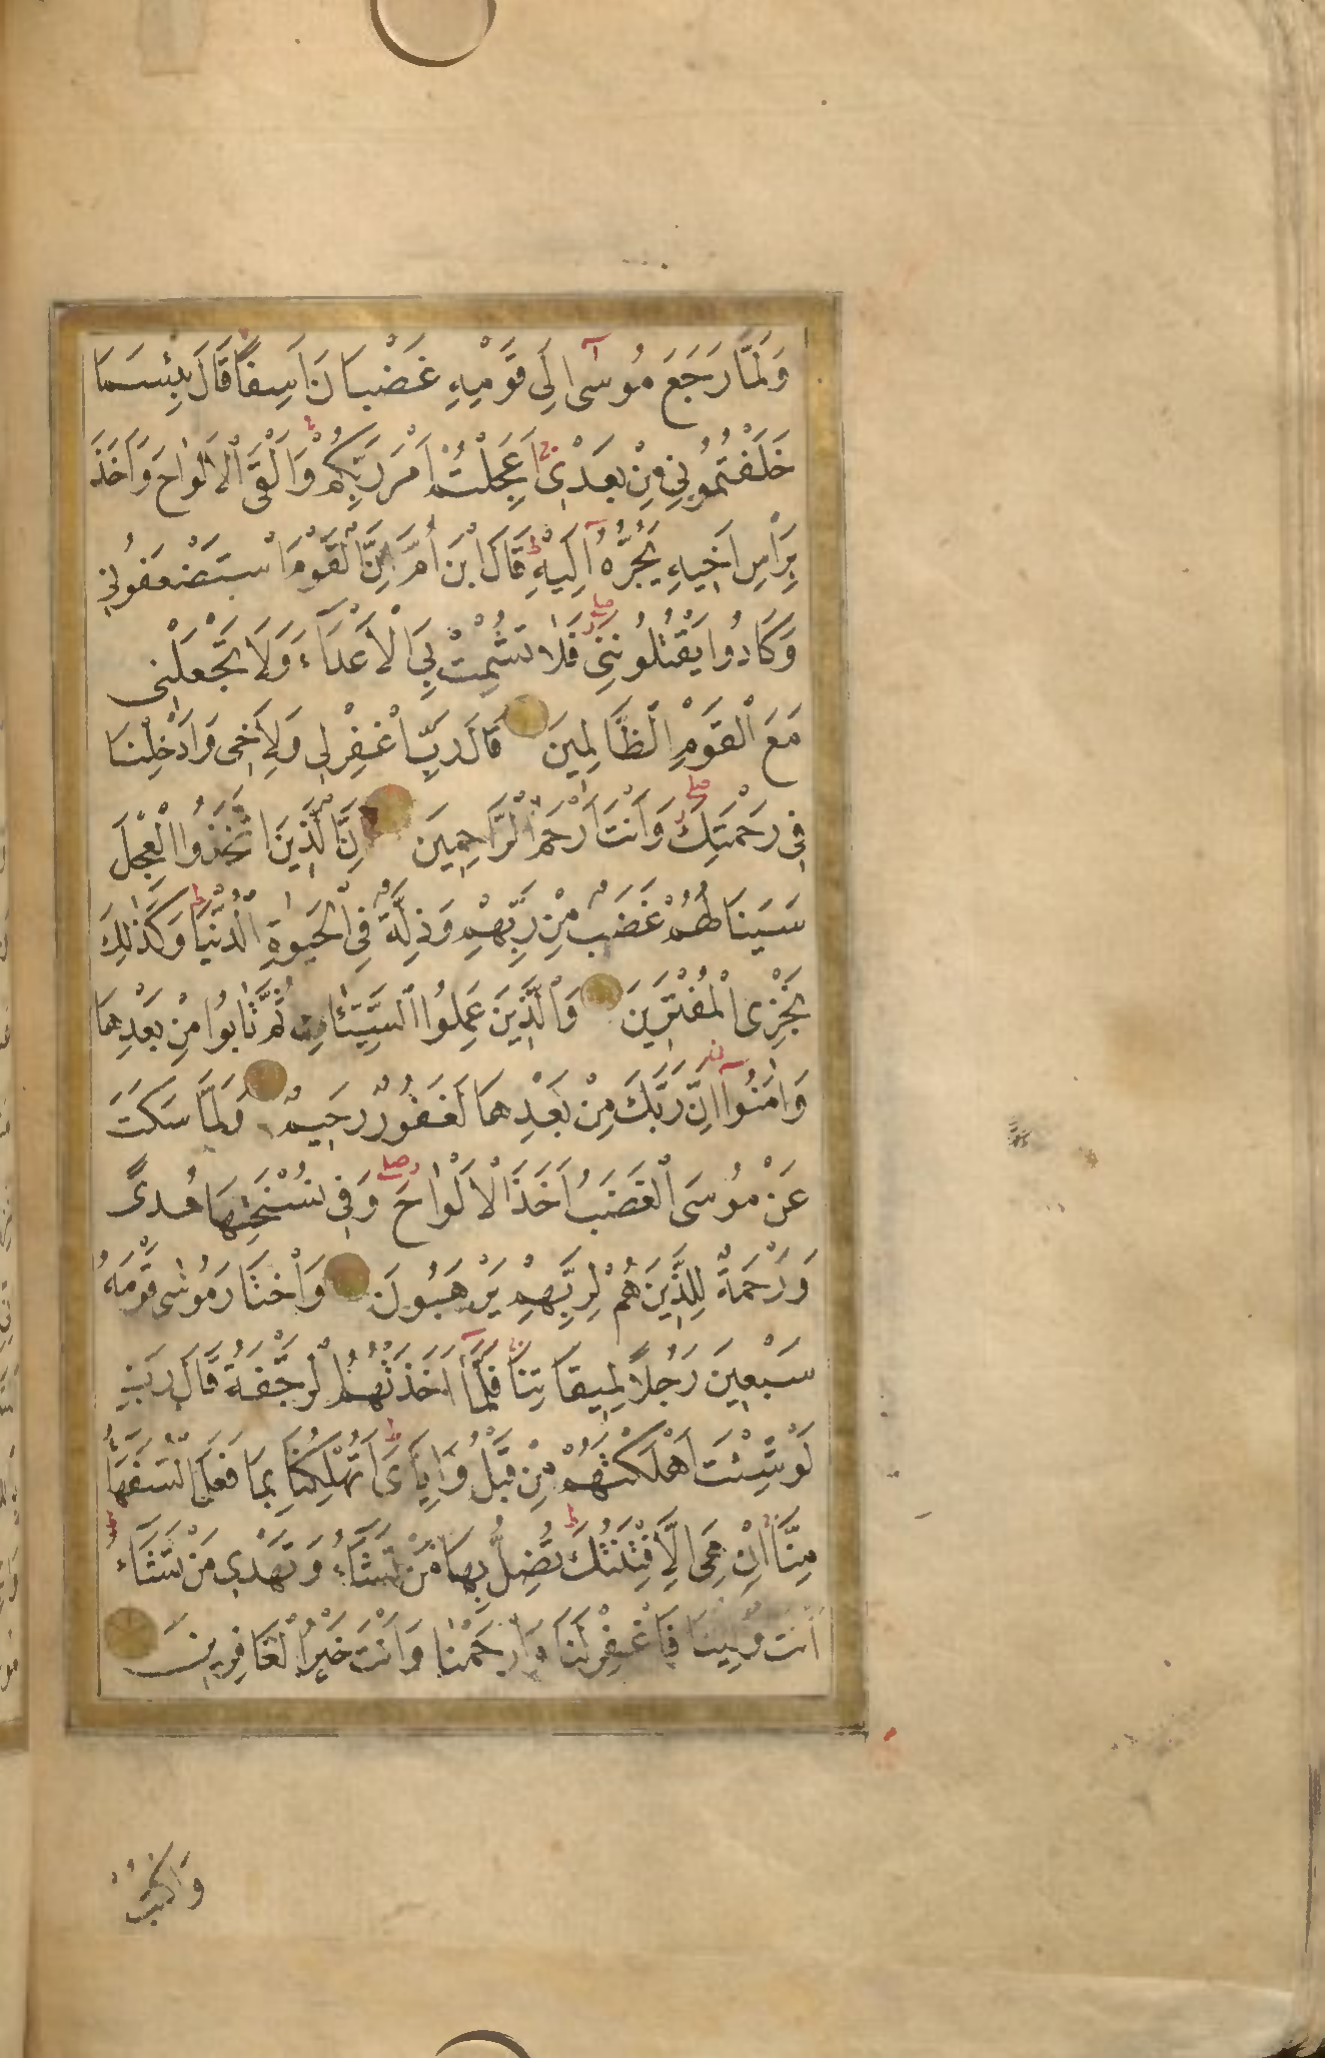 وَلَمَّا رَجَعَ مُوسٰٓى اِلٰى قَوْمِهِ غَضْبَانَ اَسِفًا قَالَ بِئْسَمَا
خَلَفْتُمُونِي مِنْ بَعْدِيۚ اَعَجِلْتُمْ اَمْرَ رَبِّكُمْ وَاَلْقَى الْاَلْوَاحَ وَاَخَذَ
بِرَاْسِ اَخِيهِ يَجُرُّهُٓ اِلَيْهِ ط قَالَ ابْنَ اُمَّ اِنَّ الْقَوْمَ اسْتَضْعَفُونِي
وَكَادُوا يَقْتُلُونَنِي صلے فَلَا تُشْمِتْ بِيَ الْاَعْدَٓاءَ وَلَا تَجْعَلْنِى
مَعَ الْقَوْمِ الظَّالِمِينَ قَالَ رَبِّ اغْفِرْ لِي وَلِاَخِى وَاَدْخِلْنَا
فِى رَحْمَتِكَ صلے وَاَنْتَ اَرْحَمُ الرَّاحِمِينَ اِنَّ الَّذِينَ اتَّخَذُوا الْعِجْلَ
سَيَنَالُهُمْ غَضَبٌ مِنْ رَبِّهِمْ وَذِلَّةٌ فِى الْحَيٰوةِ الدُّنْيَا ط وَكَذٰلِكَ
نَجْزِى الْمُفْتَرِينَ وَالَّذِينَ عَمِلُوا السَّيِّئَاتِ ثُمَّ تَابُوا مِنْ بَعْدِهَا
وَاٰمَنُوٓا اِنَّ رَبَّكَ مِنْ بَعْدِهَا لَغَفُورٌ رَحِيمٌ وَلَمَّا سَكَتَ
عَنْ مُوسَى الْغَضَبُ اَخَذَ الْاَلْوَاحَ صلے وَفِى نُسْخَتِهَا هُدًى
وَرَحْمَةٌ لِلَّذِينَ هُمْ لِرَبِّهِمْ يَرْهَبُونَ وَاخْتَارَ مُوسٰى قَوْمَهُ
سَبْعِينَ رَجُلًا لِمِيقَاتِنَا فَلَمَّٓا اَخَذَتْهُمُ الرَّجْفَةُ قَالَ رَبِّ
لَوْ شِئْتَ اَهْلَكْتَهُمْ مِنْ قَبْلُ وَاِيَّاىَ ط اَتُهْلِكُنَا بِمَا فَعَلَ السُّفَهَٓاءُ
مِنَّا اِنْ هِىَ اِلَّا فِتْنَتُكَ ط تُضِلُّ بِهَا مَنْ تَشَٓاءُ وَتَهْدِى مَنْ تَشَٓاءُ
اَنْتَ وَلِيُّنَا فَاغْفِرْ لَنَا وَارْحَمْنَا وَاَنْتَ خَيْرُ الْغَافِرِينَ
وَاكْتُبْ